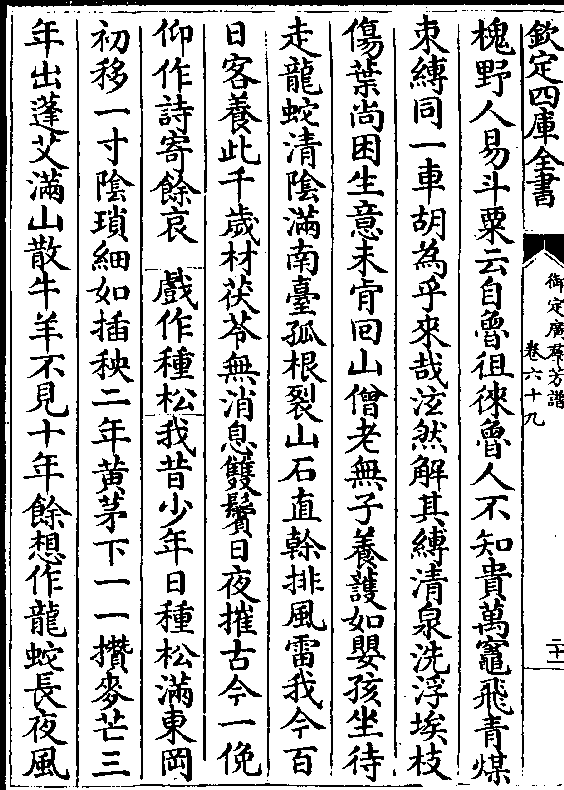 欽定四庫全書
御定廣羣芳譜
卷六十九
二十一
槐野人易斗粟云自魯徂徠魯人不知貴萬竈飛青煤
束縛同一車胡為乎來哉泫然解其縛清泉洗浮埃枝
傷葉尚困生意未肯回山僧老無子養護如嬰孩坐待
走龍蛇清陰滿南臺孤根裂山石直榦排風雷我今百
日客養此千歲材茯苓無消息雙鬢日夜摧古今一俛
仰作詩寄餘哀　戲作種松我昔少年日種松滿東岡
初移一寸陰瑣細如插秧二年黃茅下一一攢麥芒三
年出蓬艾滿山散牛羊不見十年餘想作龍蛇長夜風